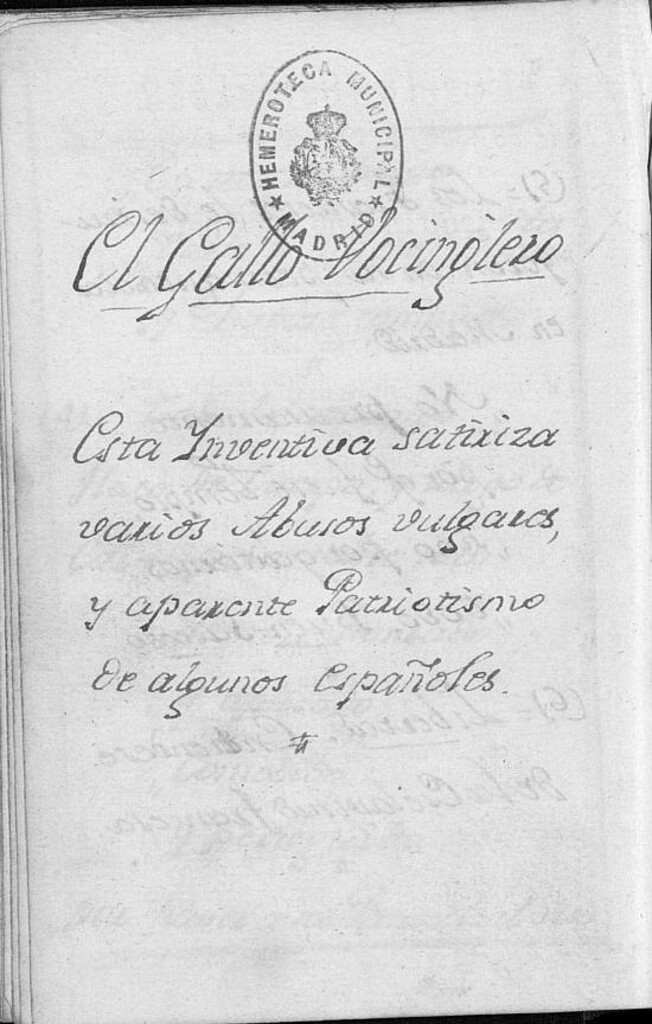 HEMEROTECA MUNICIPAL
★ MADRID ★
El Gallo Vocinglero
Esta Inventiva satiriza
varios Abusos vulgares,
y aparente Patriotismo
de algunos españoles.